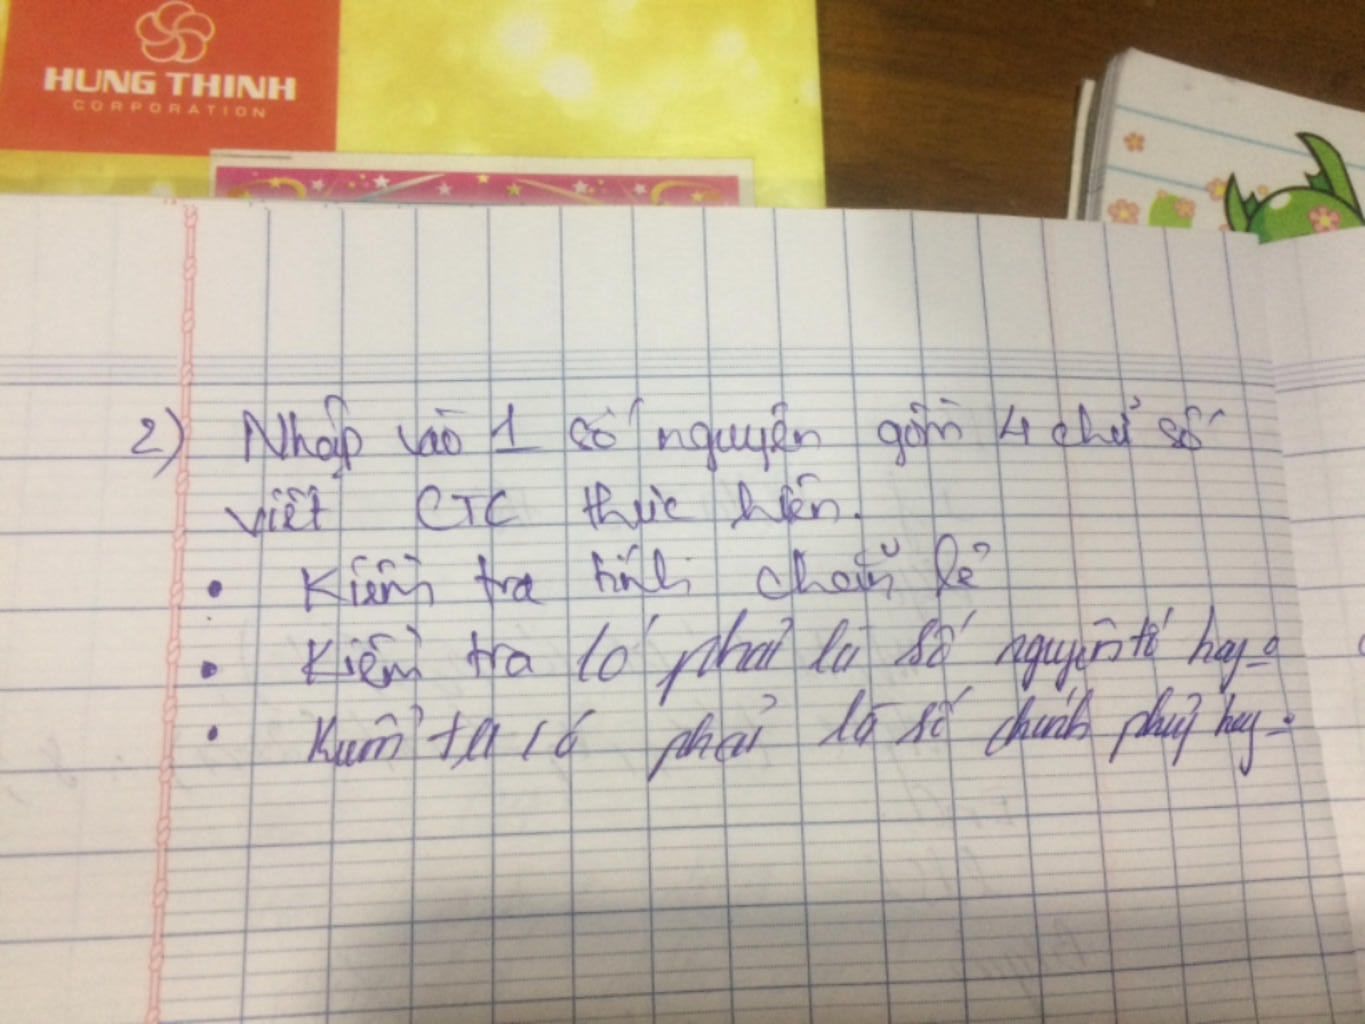 HUNG THINH
CORPORATION
2) Nhập vào 1 số nguyên gồm 4 chử số
viết CTC thực hiện.
• Kiểm tra tính chẵn lẻ
• Kiểm tra có phải là số nguyên tố hay -o
• Kiểm tra có phải là số chính phủ hay -o